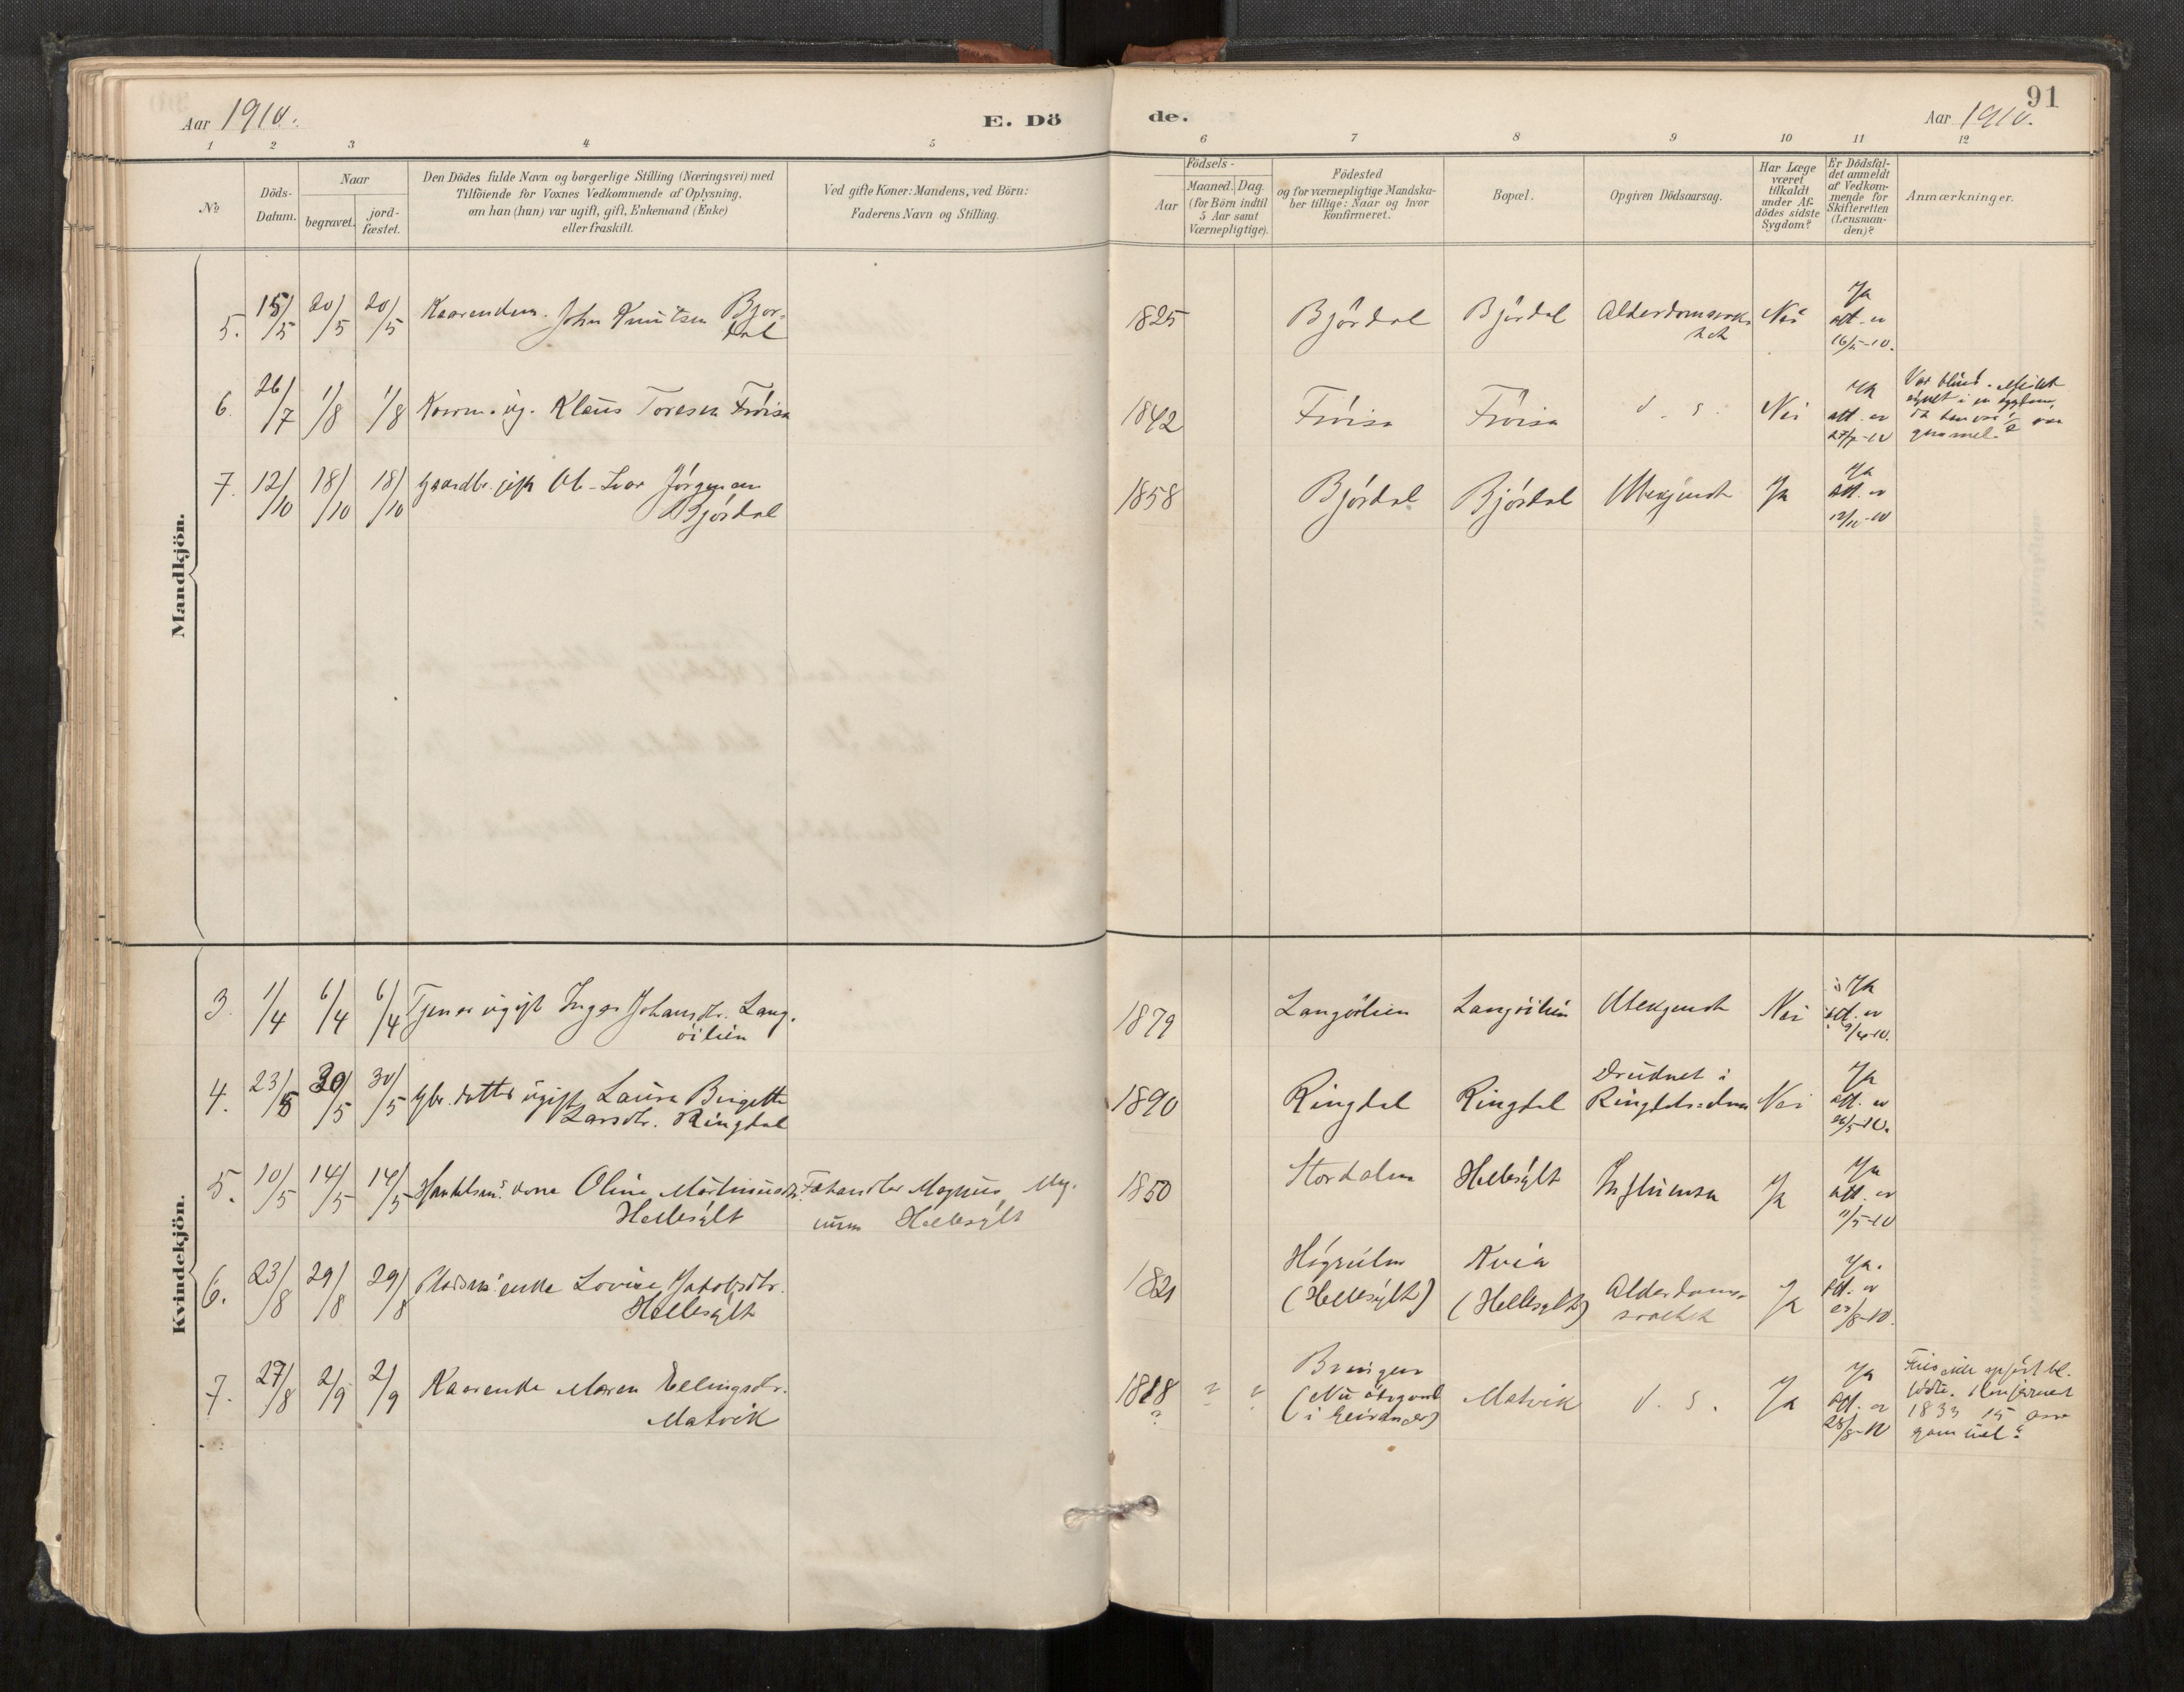 91
Aar 1910.
E. Dö
de.
Aar 1910.
1 2 3 4 5 6 7 8 9 10 11 12
No
Döds-
Datum.
Naar
begravet.
jord-
fæstet.
Den Dödes fulde Navn og borgerlige Stilling (Næringsvei) med
Tilföiende for Voxnes Vedkommende af Oplysning,
om han (hun) var ugift, gift, Enkemand (Enke)
eller fraskilt.
Ved gifte Koner: Mandens, ved Börn:
Faderens Navn og Stilling.
Födsels-
Aar
Maaned. Dag.
(for Börn indtil
5 Aar samt
Værnepligtige).
Födested
og for værnepligtige Mandska-
ber tillige: Naar og hvor
konfirmeret.
Bopæl.
Opgiven Dödsaarsag.
Har Læge
været
tilkaldt
under Af-
dödes sidste
Sygdom?
Er Dödsfal-
det anmeldt
af Vedkom-
mende for
Skifteretten
(Lensman-
den)?
Anmærkninger.
Mandkjön.
5. 15/5 20/5 20/5 Kaarendm. John Knutsen Bjor-
dal
1825 Björdal Björdal Alderdomsvæk-
Nei Ja
att. er
16/5-10.
6. 26/7 1/8 1/8 Kaarm. ug. Klaus Toresen Fröisa
1842 Fröisa Fröisa d. s. Nei Ja
att. er
27/7-10
Var blind. Mistet
synet i en sygdom,
da han var 1/2 aar
gammel.
7. 12/10 18/10 18/10 Gaardbr. gift Ole-Ivar Jörgensen
Björdal
1858 Björdal Björdal Ubekjendt Ja Ja
att. er
12/10-10
Kvindekjön.
3. 1/4 6/4 6/4 Tjener ugift Inger Johansdtr. Lang-
öilien
1879 Langöilien Langöilien Ubekjendt Nei Ja
att. er
9/4-10.
4. 23/5 30/5 30/5 Gbr. datter ugift Laura Birgitte
Larsdtr. Ringdal
1890 Ringdal Ringdal Druknet i
Ringdalselven Nei Ja
att. er
26/5-10.
5. 10/5 14/5 14/5 Handelsm's kone Oline Martinusdtr.
Hellesylt
Fæhandler Magnus
Hellesylt
1850 Stordalen Hellesylt Influensa Ja Ja
att. er
11/5-10
6. 23/8 29/8 29/8 Pladsm's enke Lovise Jakobsdtr.
Hellesylt
1821
(Hellesylt) Kvia
(Hellesylt) Alderdoms-
svækket Ja Ja.
att. er
23/8-10.
7. 27/8 2/9 2/9 Kaarenke Maren Ellingsdtr.
Matvik
1818
? ? ?
(Nu ödegaard
i Geiranger) Matvik d. s. Ja Ja
att. er
28/8-10
opfört bl.
födte. Konfirmert
1833 15 aar
gammel?